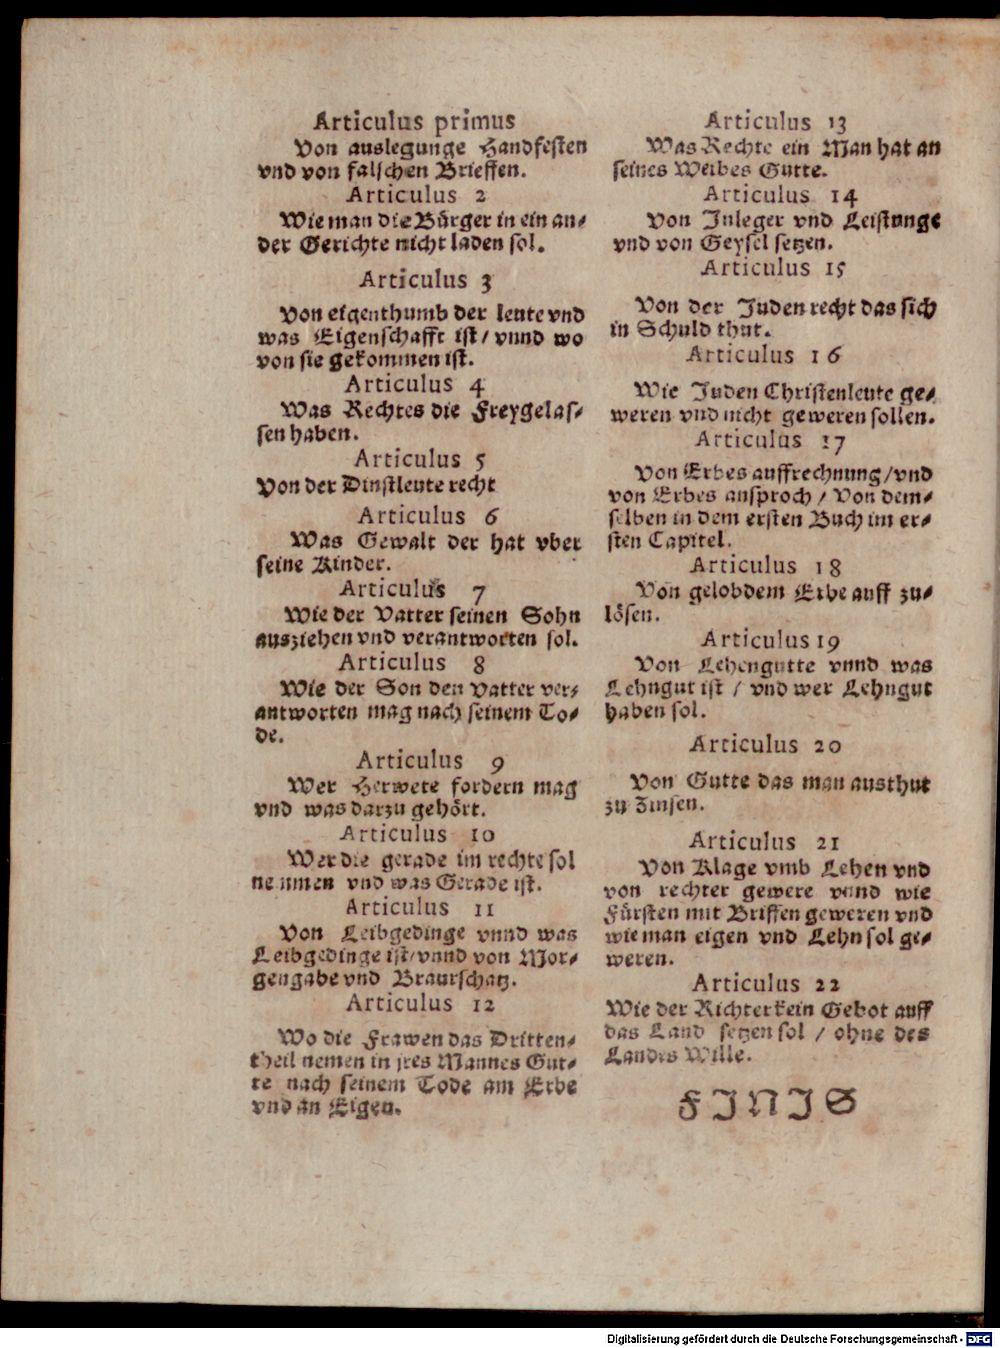 Articulus primus
Von auslegunge Handfesten
vnd von falschen Brieffen.
Articulus 2
Wie man die Bürger in ein an⸗
der Gerichte nicht laden sol.
Articulus 3
Von eigenthumb der leute vnd
was Eigenschafft ist / vnnd wo
von sie gekommen ist.
Articulus 4
Was Rechtes die Freygelas⸗
sen haben.
Articulus 5
Von der Dinstleute recht
Articulus 6
Was Gewalt der hat vber
seine Kinder.
Articulus 7
Wie der Vatter seinen Sohn
ausziehen vnd verantworten sol.
Articulus 8
Wie der Son den vatter ver⸗
antworten mag nach seinem To⸗
de.
Articulus 9
Wer Herwete fordern mag
vnd was darzu gehört.
Articulus 10
Wer die gerade im rechte sol
nemmen vnd was Gerade ist.
Articulus 11
Von Leibgedinge vnnd was
Leibgedinge ist / vnnd von Mor⸗
gengabe vnd Braurschatz.
Articulus 12
Wo die Frawen das Dritten⸗
theil nemen in jres Mannes Gut⸗
te nach seinem Tode am Erbe
vnd an Eigen.
Articulus 13
Was Rechte ein Man hat an
seines Weibes Gutte.
Articulus 14
Von Inleger vnd Leistunge
vnd von Geysel setzen.
Articulus 15
Von der Juden recht das sich
in Schuld thut.
Articulus 16
Wie Juden Christenleute ge⸗
weren vnd nicht geweren sollen.
Articulus 17
Von Erbes auffrechnung / vnd
von Erbes ansproch / Von dem⸗
selben in dem ersten Buch im er⸗
sten Capitel.
Articulus 18
Von gelobdem Erbe auff zu⸗
lösen.
Articulus 19
Von Lehengutte vnnd was
Lehngut ist / vnd wer Lehngut
haben sol.
Articulus 20
Von Gutte das man austhut
zu Zinsen.
Articulus 21
Von Klage vmb Lehen vnd
von rechter gewere vnnd wie
Fürsten mit Briffen geweren vnd
wie man eigen vnd Lehn sol ge⸗
weren.
Articulus 22
Wie der Richter kein Gebot auff
das Land setzen sol / ohne des
Landes Wille.
FINIS
Digitalisierung gefördert durch die Deutsche Forschungsgemeinschaft - DFG